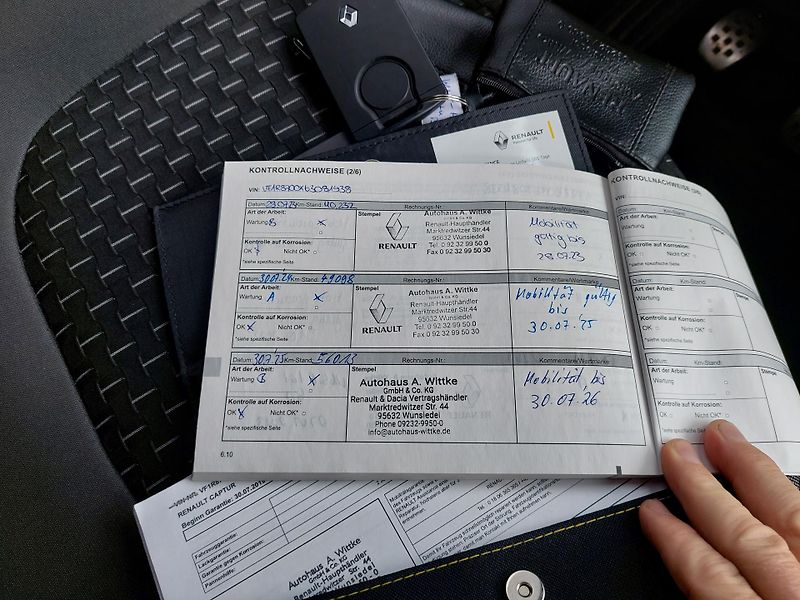 RENAULT
KONTROLLNACHWEISE (2/6)
VIN:
Datum: Km-Stand: 40.237 Rechnungs-Nr.: Kommentare/Wertmarke
Art der Arbeit:
Wartung B X
Kontrolle auf Korrosion:
OK X Nicht OK*
*siehe spezifische Seite
Stempel
RENAULT
Autohaus A. Wittke
GmbH & Co. KG
Renault-Haupthändler
Marktredwitzer Str.44
95632 Wunsiedel
Tel. 0 92 32 99 50 0
Fax 0 92 32 99 50 30
Mobilität
gültig bis
Datum: 30.07.24 Km-Stand: 49098 Rechnungs-Nr.: Kommentare/Wertmarke
Art der Arbeit:
Wartung A X
Kontrolle auf Korrosion:
OK X Nicht OK*
*siehe spezifische Seite
Stempel
RENAULT
Autohaus A. Wittke
GmbH & Co. KG
Renault-Haupthändler
Marktredwitzer Str.44
95632 Wunsiedel
Tel. 0 92 32 99 50 0
Fax 0 92 32 99 50 30
Mobilität gültig
bis
30.07.'25
Datum: 30.7.'25 Km-Stand: 56013 Rechnungs-Nr.: Kommentare/Wertmarke
Art der Arbeit:
Wartung B X
Kontrolle auf Korrosion:
OK X Nicht OK*
*siehe spezifische Seite
Stempel
Autohaus A. Wittke
GmbH & Co. KG
Renault & Dacia Vertragshändler
Marktredwitzer Str. 44
95632 Wunsiedel
Phone 09232-9950-0
info@autohaus-wittke.de
Mobilität, bis
30.07.26
6.10
KONTROLLNACHWEISE
VIN:
Datum: Km-Stand:
Art der Arbeit:
Wartung
Kontrolle auf Korrosion:
OK Nicht OK*
*siehe spezifische Seite
Datum: Km-Stand:
Art der Arbeit:
Wartung
Kontrolle auf Korrosion:
OK Nicht OK*
*siehe spezifische Seite
Datum: Km-Stand:
Art der Arbeit: Stempel
Wartung
Kontrolle auf Korrosion:
OK Nicht OK*
RENAULT CAPTUR
Beginn Garantie: 30.07.
Fahrzeuggarantie:
Lackgarantie:
Garantie gegen Korrosion:
Pannenhilfe:
Autohaus A. Wittke
GmbH & Co. KG
Renault-Haupthändler